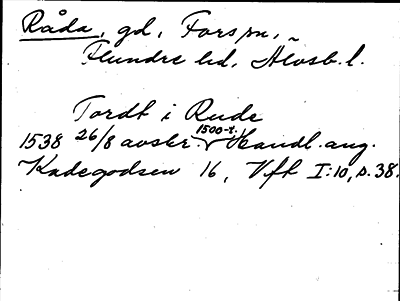 Råda, gd, Forsm,
Flundre hd, Älvsb. l.
Tordt i Rude
1538 26/8 avskr. (1500-t.) Handl. ang.
Kadegodsen 16, Vfh I:10, s. 38.